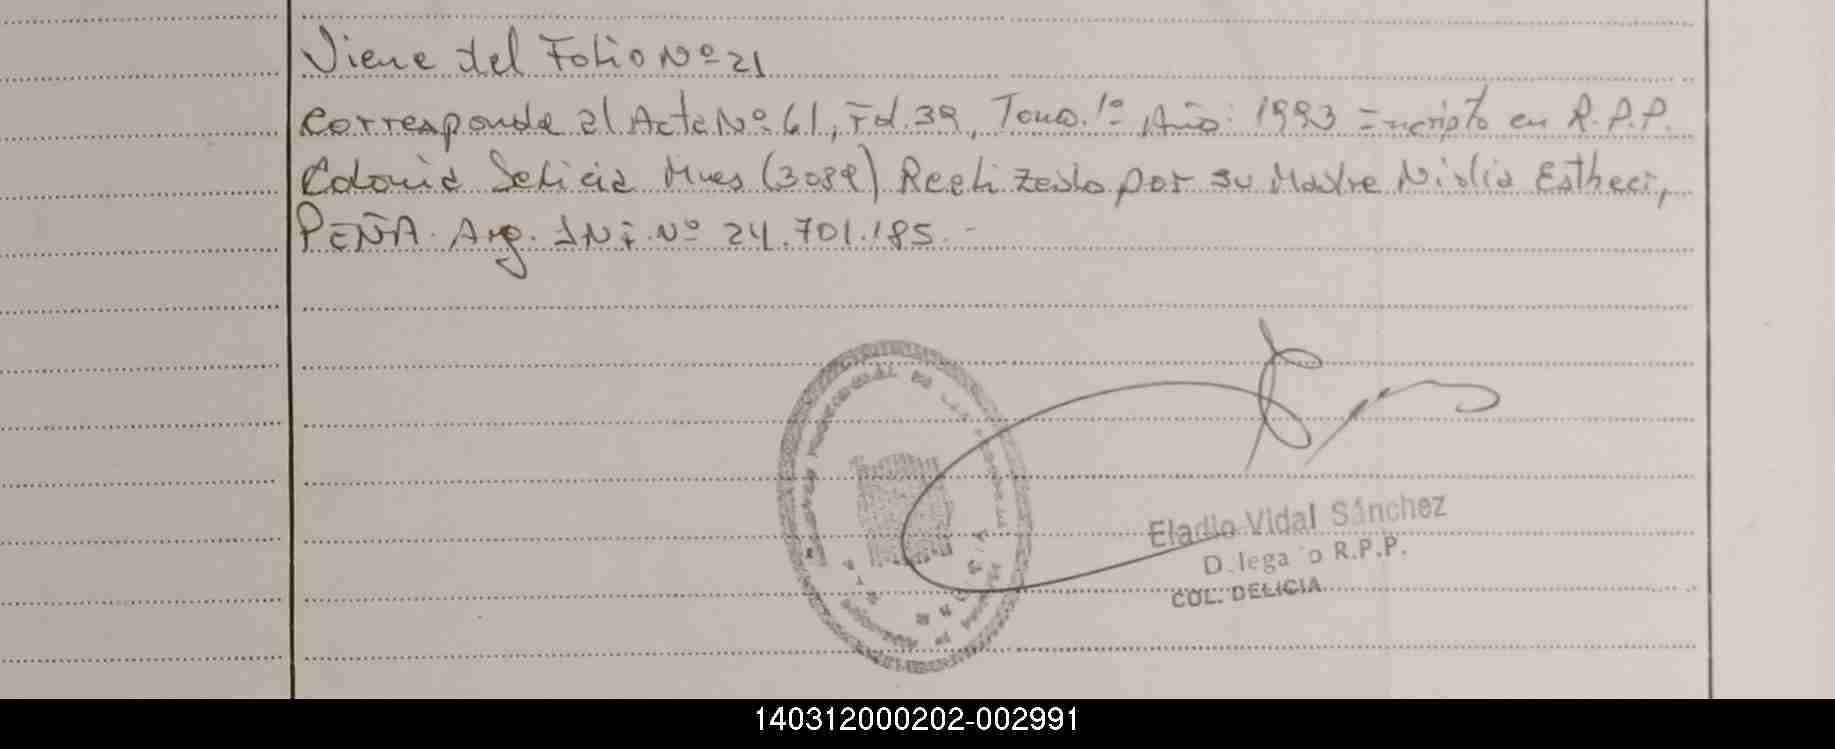 Viene del Folio Nº 21
Corresponde al Acta Nº 61, Fol. 39, Tomo. 1º Año: 1993 Inscripto en R.P.P.
Colonia Delicia Mnes (3089) Realizado por su Madre Nidia Esther,
PEÑA. Arg. DNI. Nº 24.701.185.-
Eladio Vidal Sánchez
D.lega o R.P.P.
COL. DELICIA
140312000202-002991